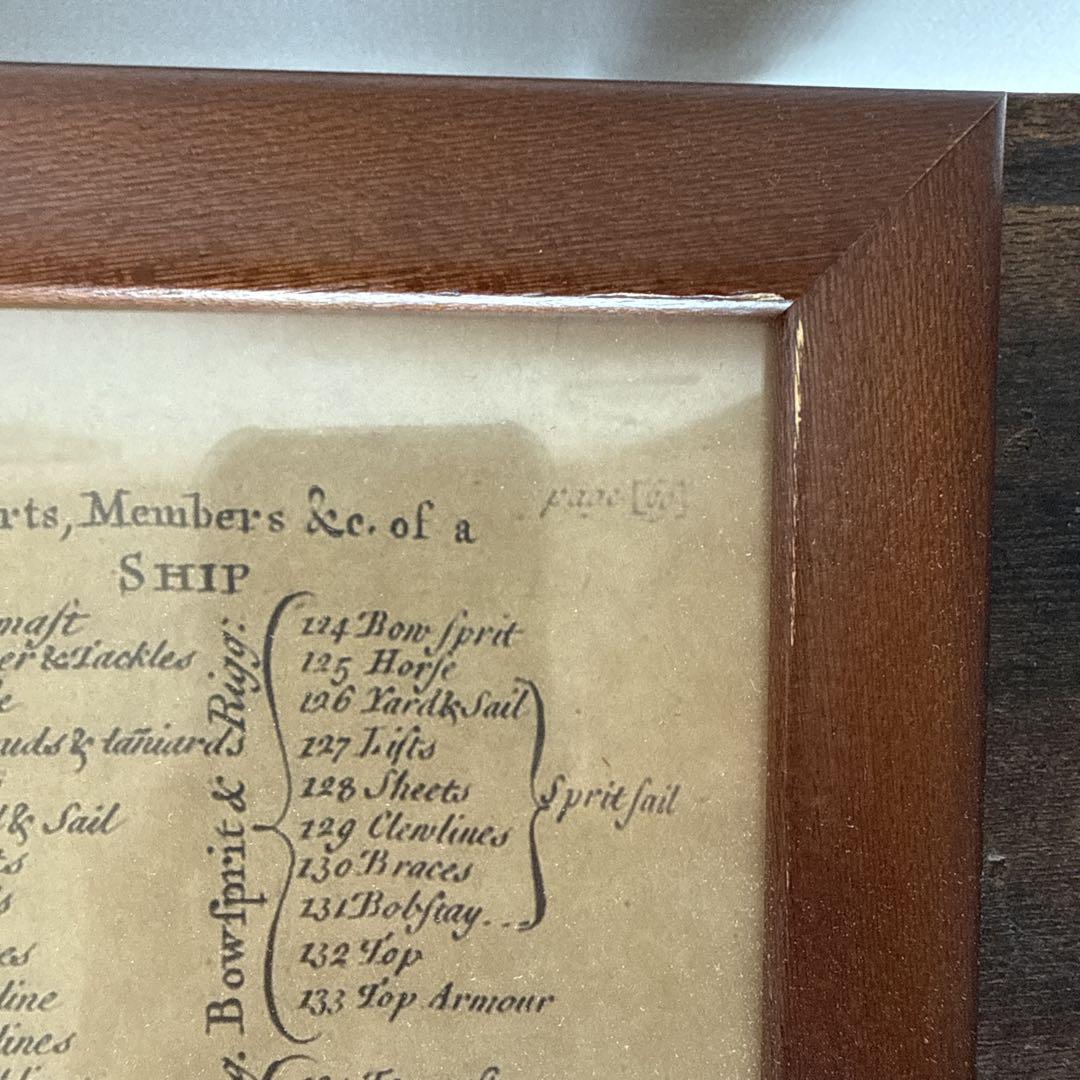 page [66]
rts, Members &c. of a
SHIP
maſt
er & Tackles
e
uds & lañiards
l & Sail
ts
s
es
line
lines
Bowſprit & Rigg:
124 Bow ſprit
125 Horſe
126 Yard & Sail
127 Lifts
128 Sheets
129 Clewlines
130 Braces
131 Bobſtay
Spritſail
132 Top
133 Top Armour
g.